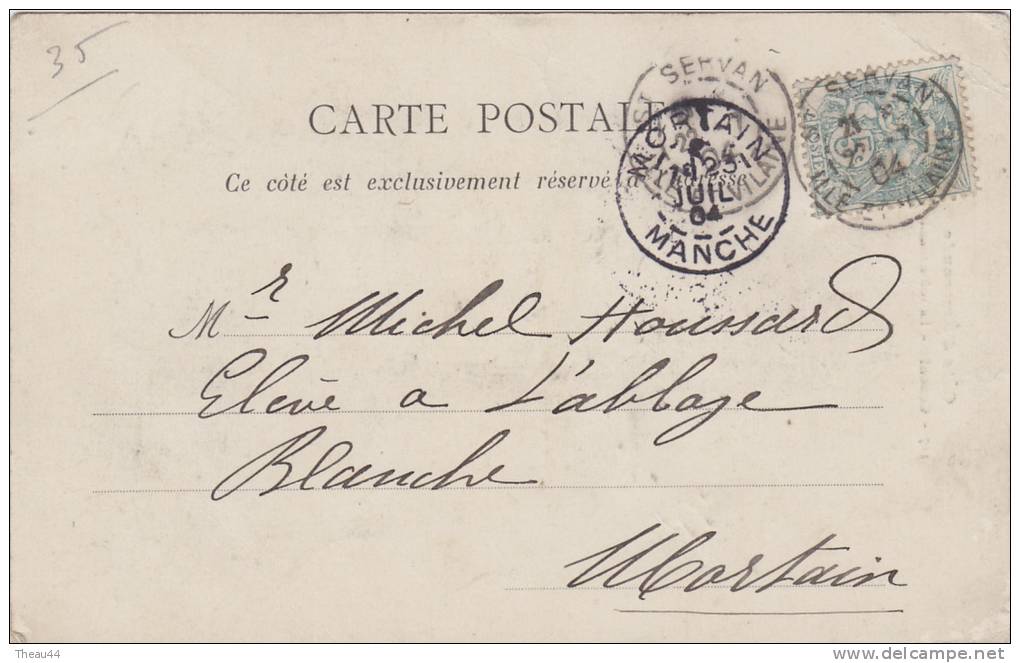 35
CARTE POSTALE
Ce côté est exclusivement réservé à l'adresse
SERVAN
MORTAIN
JUIL
04
MANCHE
SERVAN
04
ILLE
VILAINE
Mr Michel Houssard
Elève a L'abbaye
Blanche
Mortain
Theau44
www.delcampe.net